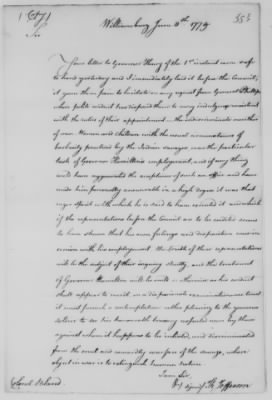 (Copy)
353
Williamsburg June 8th 1779
Sir
Your letter to Governor Henry of the 1st instant came safe
to hand yesterday and I immediately laid it before the Council
it gave them pain to hesitate on any request from General Phillips
whose polite conduct has disposed them to every indulgence consistent
with the duties of their appointment the indiscriminate murther of
men Women and children with the usual circumstances of
barbarity practised by the Indian savages was the particular
task of Governor Hamilton's employment, and if any thing
could have aggravated the acceptance of such an office and have
made him personally answerable in a high degree it was that
eager spirit with which he is said to have executed it and which
if the representations before the Council are to be credited seems
to have shewn that his own feelings and disposition were in
unison with his employment the truth of these representations
will be the subject of their inquiry shortly and the treatment
of Governor Hamilton will be mild or otherwise as his conduct
shall appear to merit on a
it must furnish a contemplation rather pleasing to the generous
soldier to see his honorable bravery respected even by those
against whom it happens to be enlisted, and discriminated
from the cruel and cowardly warfare of the savage, whose
object in war is to extinguish human nature
I am Sir,
(signed) Th. Jefferson
Colonel Bland